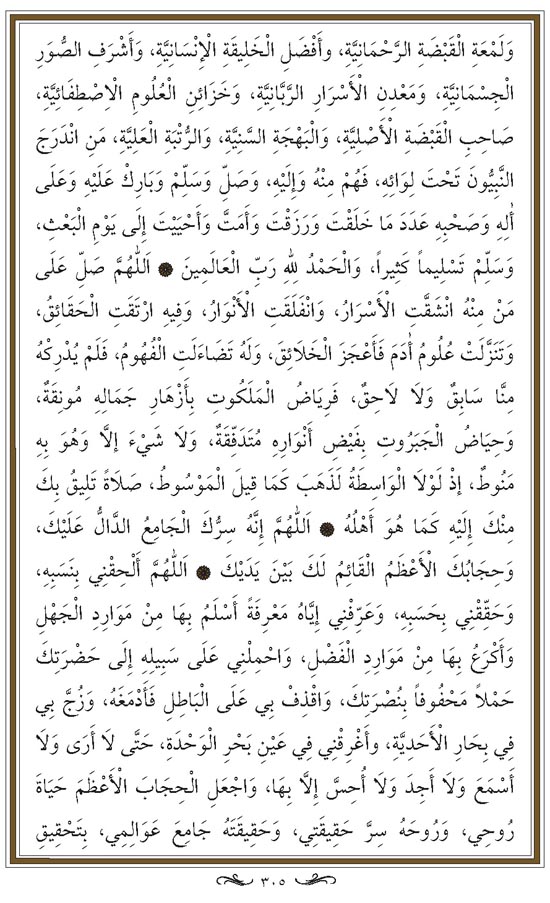 وَلَمْعَةِ الْقَبْضَةِ الرَّحْمَانِيَّةِ، وَأَفْضَلِ الْخَلِيقَةِ الْإِنْسَانِيَّةِ، وَأَشْرَفِ الصُّوَرِ
الْجِسْمَانِيَّةِ، وَمَعْدِنِ الْأَسْرَارِ الرَّبَّانِيَّةِ، وَخَزَائِنِ الْعُلُومِ الْاِصْطِفَائِيَّةِ،
صَاحِبِ الْقَبْضَةِ الْأَصْلِيَّةِ، وَالْبَهْجَةِ السَّنِيَّةِ، وَالرُّتْبَةِ الْعَلِيَّةِ، مَنِ انْدَرَجَ
النَّبِيُّونَ تَحْتَ لِوَائِهِ، فَهُمْ مِنْهُ وَإِلَيْهِ، وَصَلِّ وَسَلِّمْ وَبَارِكْ عَلَيْهِ وَعَلَى
أٰلِهِ وَصَحْبِهِ عَدَدَ مَا خَلَقْتَ وَرَزَقْتَ وَأَمَتَّ وَأَحْيَيْتَ إِلَى يَوْمِ الْبَعْثِ،
وَسَلِّمْ تَسْلِيماً كَثِيراً، وَالْحَمْدُ لِلّٰهِ رَبِّ الْعَالَمِينَ ۞ اَللّٰهُمَّ صَلِّ عَلَى
مَنْ مِنْهُ انْشَقَّتِ الْأَسْرَارُ، وَانْفَلَقَتِ الْأَنْوَارُ، وَفِيهِ ارْتَقَتِ الْحَقَائِقُ،
وَتَنَزَّلَتْ عُلُومُ أٰدَمَ فَأَعْجَزَ الْخَلَائِقَ، وَلَهُ تَضَاءَلَتِ الْفُهُومُ، فَلَمْ يُدْرِكْهُ
مِنَّا سَابِقٌ وَلَا لَاحِقٌ، فَرِيَاضُ الْمَلَكُوتِ بِأَزْهَارِ جَمَالِهِ مُونِقَةٌ،
وَحِيَاضُ الْجَبَرُوتِ بِفَيْضِ أَنْوَارِهِ مُتَدَفِّقَةٌ، وَلَا شَيْءَ إِلَّا وَهُوَ بِهِ
مَنُوطٌ، إِذْ لَوْلَا الْوَاسِطَةُ لَذَهَبَ كَمَا قِيلَ الْمَوْسُوطُ، صَلَاةً تَلِيقُ بِكَ
مِنْكَ إِلَيْهِ كَمَا هُوَ أَهْلُهُ ۞ اَللّٰهُمَّ إِنَّهُ سِرُّكَ الْجَامِعُ الدَّالُّ عَلَيْكَ،
وَحِجَابُكَ الْأَعْظَمُ الْقَائِمُ لَكَ بَيْنَ يَدَيْكَ ۞ اَللّٰهُمَّ أَلْحِقْنِي بِنَسَبِهِ،
وَحَقِّقْنِي بِحَسَبِهِ، وَعَرِّفْنِي إِيَّاهُ مَعْرِفَةً أَسْلَمُ بِهَا مِنْ مَوَارِدِ الْجَهْلِ
وَأَكْرَعُ بِهَا مِنْ مَوَارِدِ الْفَضْلِ، وَاحْمِلْنِي عَلَى سَبِيلِهِ إِلَى حَضْرَتِكَ
حَمْلاً مَحْفُوفاً بِنُصْرَتِكَ، وَاقْذِفْ بِي عَلَى الْبَاطِلِ فَأَدْمَغَهُ، وَزُجَّ بِي
فِي بِحَارِ الْأَحَدِيَّةِ، وَأَغْرِقْنِي فِي عَيْنِ بَحْرِ الْوَحْدَةِ، حَتَّى لَا أَرَى وَلَا
أَسْمَعَ وَلَا أَجِدَ وَلَا أُحِسَّ إِلَّا بِهَا، وَاجْعَلِ الْحِجَابَ الْأَعْظَمَ حَيَاةَ
رُوحِي، وَرُوحَهُ سِرَّ حَقِيقَتِي، وَحَقِيقَتَهُ جَامِعَ عَوَالِمِي، بِتَحْقِيقِ
٣٠٥